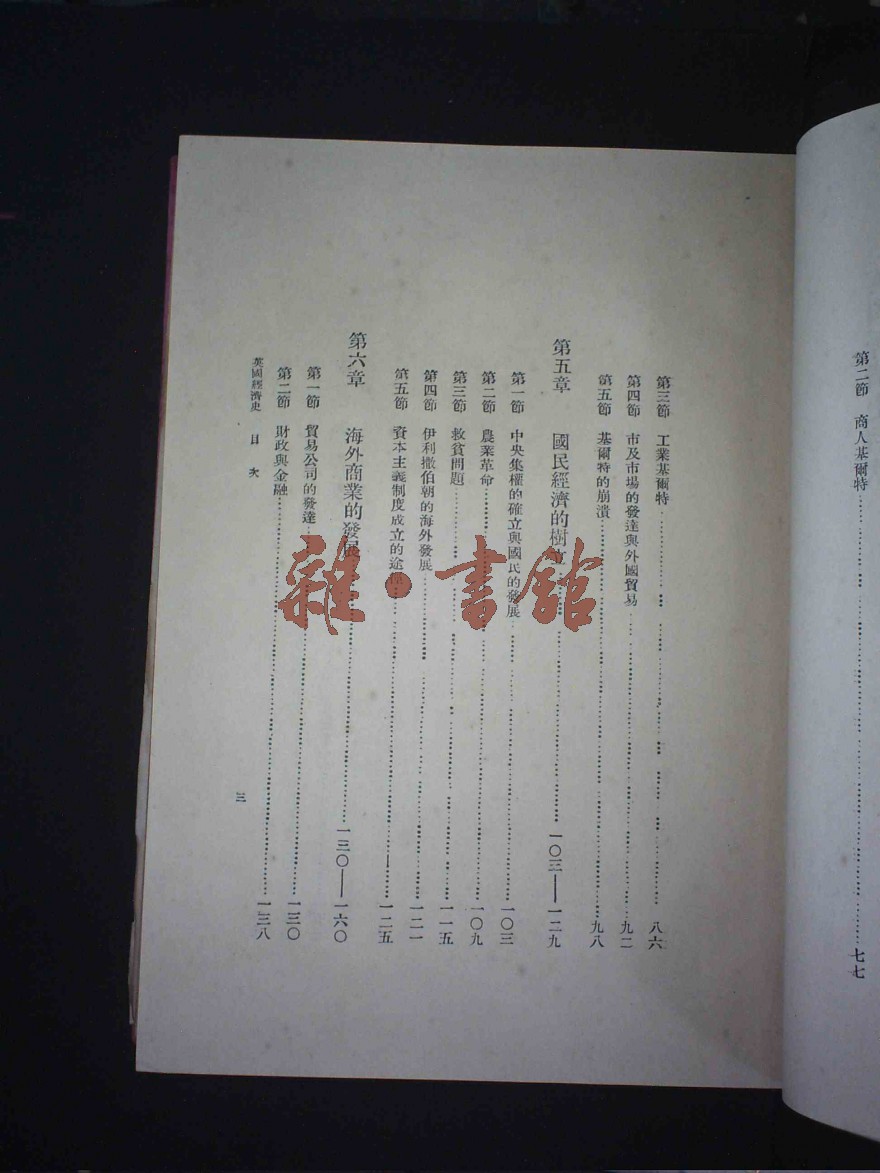 第二節 商人基爾特……七七
第三節 工業基爾特……八六
第四節 市及市場的發達與外國貿易……九二
第五節 基爾特的崩潰……九八
第五章 國民經濟的樹立……一〇三——一二九
第一節 中央集權的確立與國民的發展……一〇三
第二節 農業革命……一〇九
第三節 救貧問題……一一五
第四節 伊利撒伯朝的海外發展……一二一
第五節 資本主義制度成立的途徑……一二五
第六章 海外商業的發展……一三〇——一六〇
第一節 貿易公司的發達……一三〇
第二節 財政與金融……一三八
英國經濟史 目次
三
雜·書館